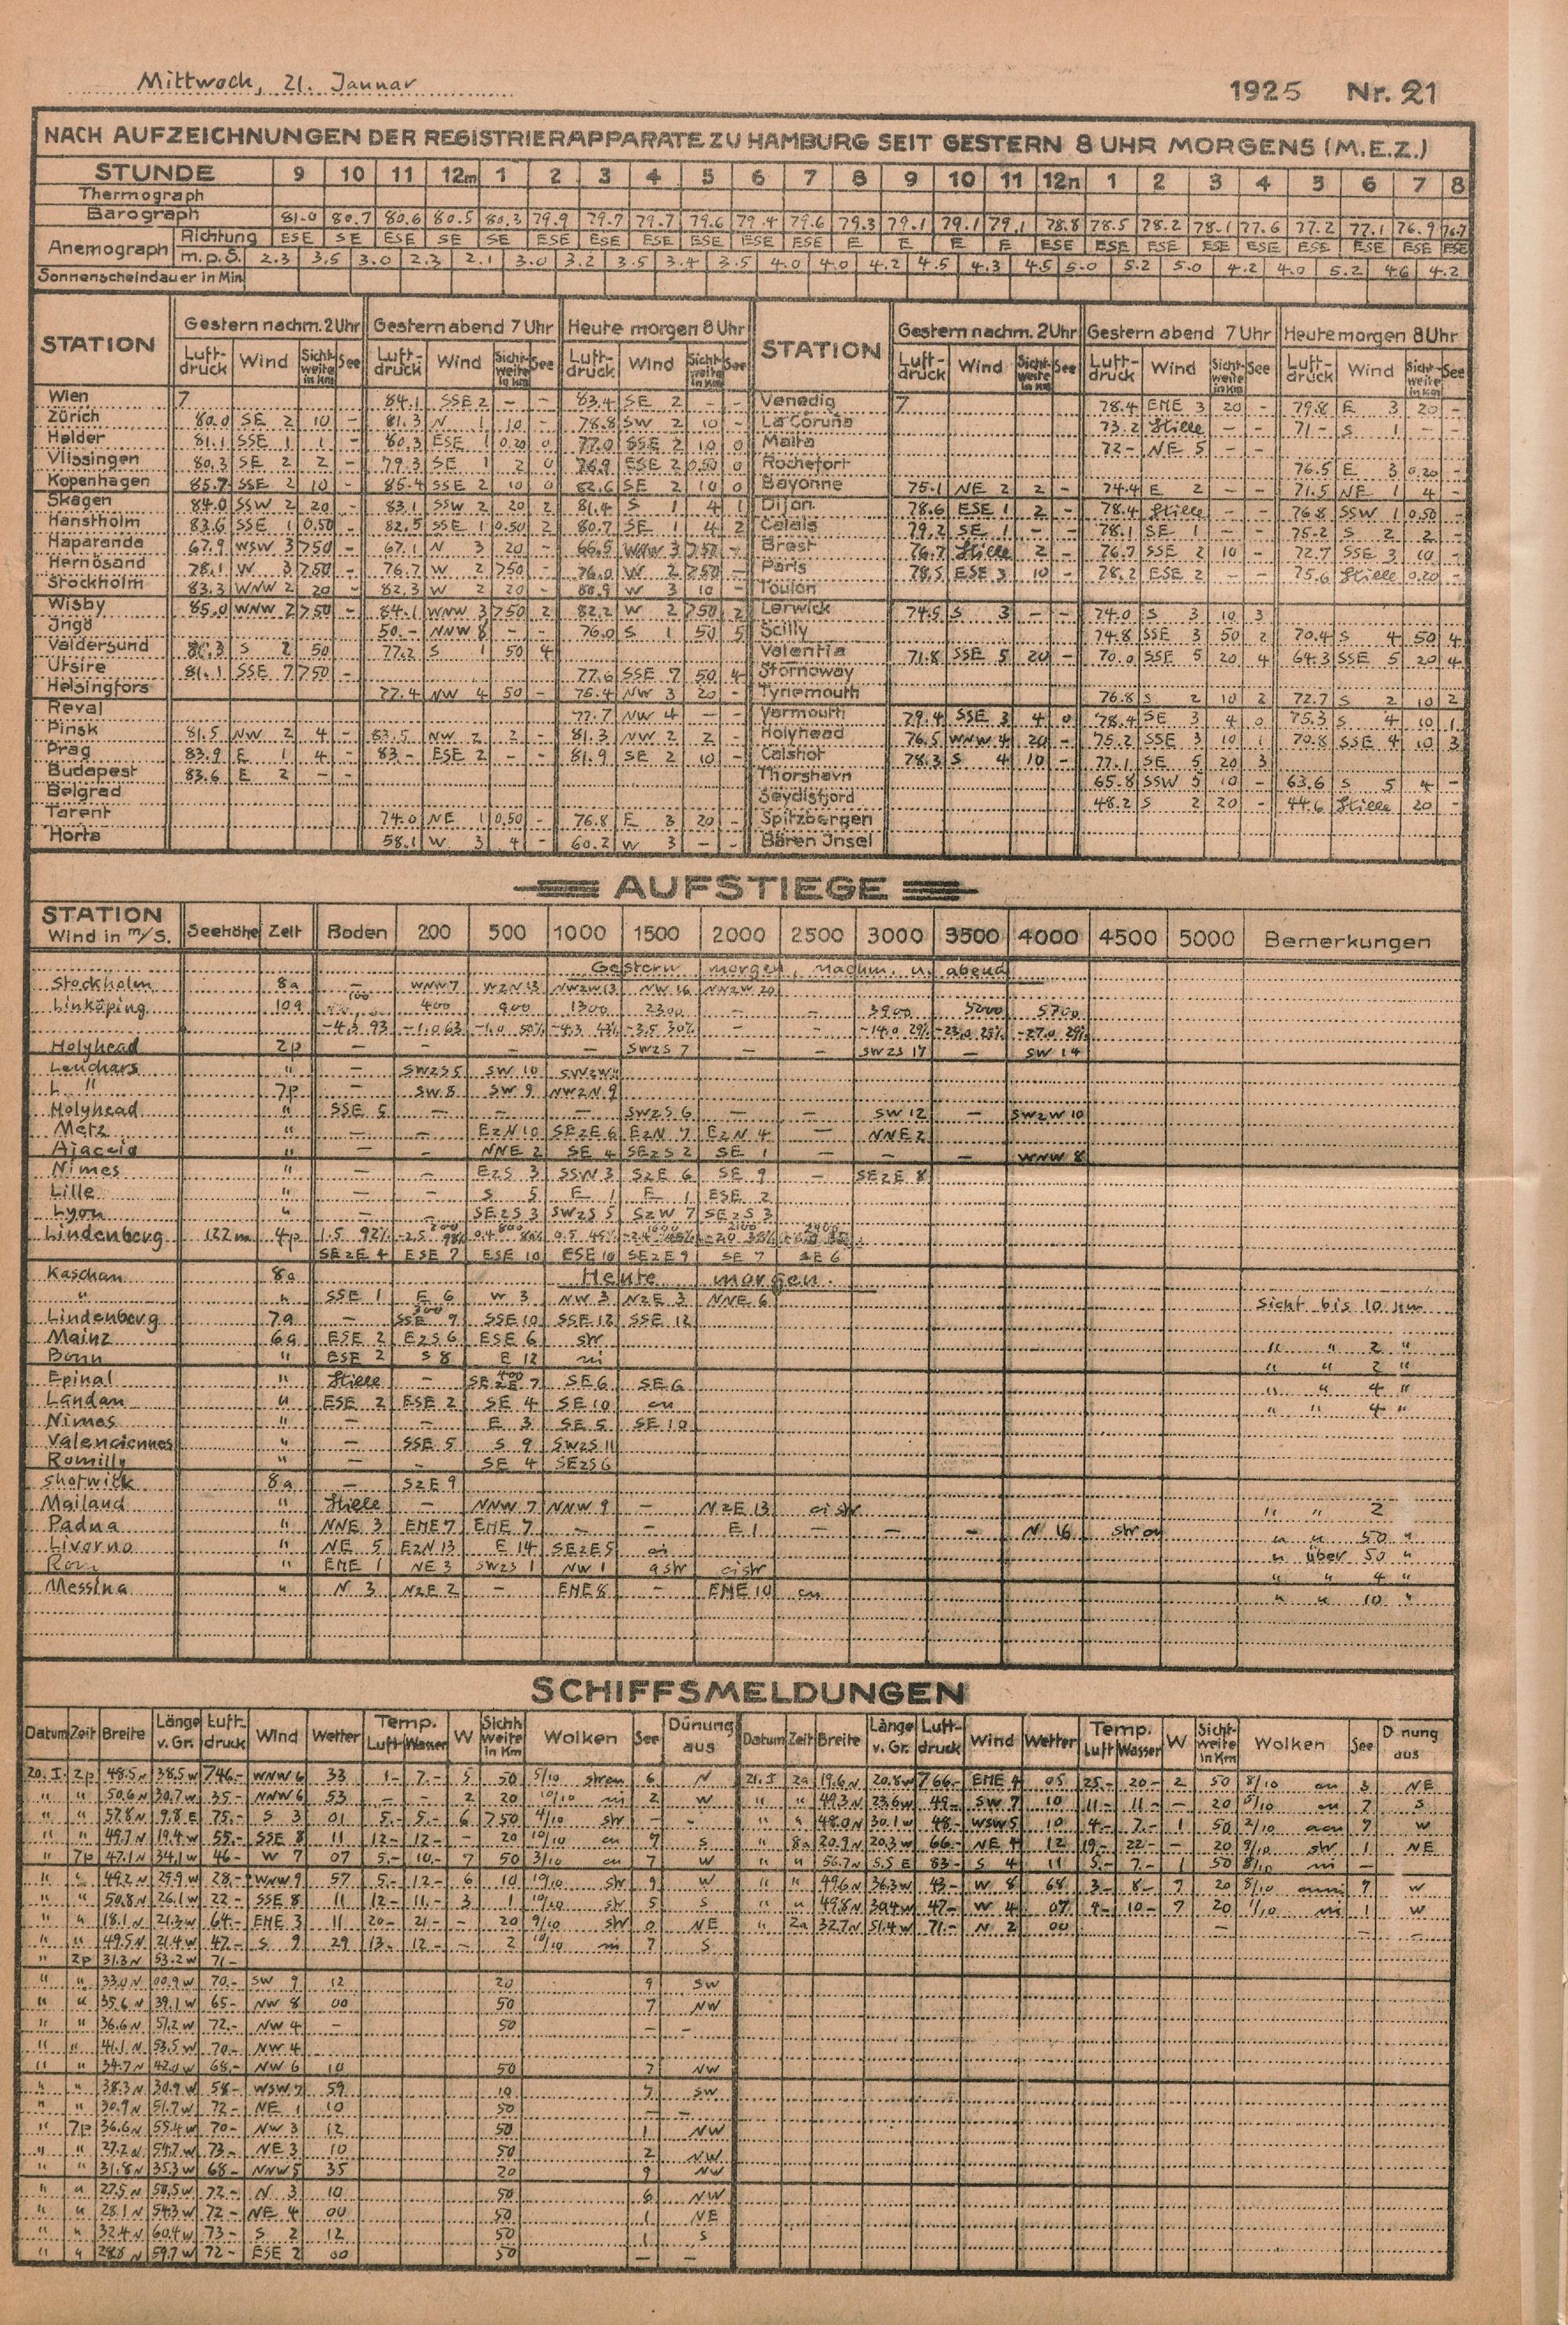 Mittwoch, 21. Januar 1925 Nr. 21
NACH AUFZEICHNUNGEN DER REGISTRIERAPPARATE ZU HAMBURG SEIT GESTERN 8 UHR MORGENS (M.E.Z.)
STUNDE 9 10 11 12m 1 2 3 4 5 6 7 8 9 10 11 12n 1 2 3 4 5 6 7 8
Thermograph
Barograph 81.0 80.7 80.6 80.5 80.3 79.9 79.7 79.7 79.6 79.4 79.6 79.3 79.1 79.1 79.1 78.8 78.5 78.2 78.1 77.6 77.2 77.1 76.9 76.7
Anemograph Richtung ESE SE ESE SE SE ESE ESE ESE ESE ESE ESE E E E E ESE ESE ESE ESE ESE ESE ESE ESE ESE
m.p.S. 2.3 3.5 3.0 2.3 2.1 3.0 3.2 3.5 3.4 3.5 4.0 4.0 4.2 4.5 4.3 4.5 5.0 5.2 5.0 4.2 4.0 5.2 4.6 4.2
Sonnenscheindauer in Min.
STATION Gestern nachm. 2 Uhr Gestern abend 7 Uhr Heute morgen 8 Uhr STATION Gestern nachm. 2 Uhr Gestern abend 7 Uhr Heute morgen 8 Uhr
Luftdruck Wind Sichtweite in km See Luftdruck Wind Sichtweite in km See Luftdruck Wind Sichtweite in km See Luftdruck Wind Sichtweite in km See Luftdruck Wind Sichtweite in km See Luftdruck Wind Sichtweite in km See
Wien 7 84.1 SSE 2 - - 83.4 SE 2 - - Venedig 7 78.4 ENE 3 20 - 79.8 E 3 20 -
Zürich 80.0 SE 2 10 - 81.3 N 1 10 - 78.8 SW 2 10 - La Coruña 73.2 Stille - - 71.- S 1 - -
Helder 81.1 SSE 1 1 - 80.3 ESE 1 0.20 0 77.0 SSE 2 10 0 Malta 72.- NE 5 - -
Vlissingen 80.3 SE 2 2 - 79.3 SE 1 2 0 76.9 ESE 2 0.50 0 Rochefort 76.5 E 3 0.20 -
Kopenhagen 85.7 SSE 2 10 - 85.4 SSE 2 10 0 82.6 SE 2 10 0 Bayonne 75.1 NE 2 2 - 74.4 E 2 - - 71.5 NE 1 4 -
Skagen 84.0 SSW 2 20 - 83.1 SSW 2 20 2 81.4 S 1 4 1 Dijon 78.6 ESE 1 2 - 78.4 Stille - - 76.8 SSW 1 0.50 -
Hanstholm 83.6 SSE 1 0.50 - 82.5 SSE 1 0.50 2 80.7 SE 1 4 2 Calais 79.2 SE 1 - - 78.1 SE 1 - - 75.2 S 2 2 -
Haparanda 67.9 WSW 3 >50 - 67.1 N 3 20 - 66.5 WNW 3 >50 - Brest 76.7 Stille 2 - 76.7 SSE 2 10 - 72.7 SSE 3 10 -
Hernösand 78.1 W 3 >50 - 76.7 W 2 >50 - 76.0 W 2 >50 - Paris 78.5 ESE 3 10 - 78.2 ESE 2 - - 75.6 Stille 0.20 -
Stockholm 83.3 WNW 2 20 - 82.3 W 2 20 - 80.9 W 3 10 - Toulon
Wisby 85.0 WNW 2 >50 - 84.1 WNW 3 >50 2 82.2 W 2 >50 2 Lerwick 74.5 S 3 - - 74.0 S 3 10 3
Ingö 50.- NNW 8 - - 76.0 S 1 50 5 Scilly 74.8 SSE 3 50 2 70.4 S 4 50 4
Valdersund S 2 50 77.2 S 1 50 4 Valentia 71.8 SSE 5 20 - 70.0 SSE 5 20 4 64.3 SSE 5 20 4
Utsire 81.1 SSE 7 >50 - 77.6 SSE 7 50 4 Stornoway
Helsingfors 77.4 NW 4 50 - 75.4 NW 3 20 - Tynemouth 76.8 S 2 10 2 72.7 S 2 10 2
Reval 77.7 NW 4 - - Yarmouth 79.4 SSE 3 4 0 78.4 SE 3 4 0 75.3 S 4 10 1
Pinsk 81.5 NW 2 4 - 83.5 NW 2 2 - 81.3 NW 2 2 - Holyhead 76.5 WNW 4 20 - 75.2 SSE 3 10 1 70.8 SSE 4 10 3
Prag 83.9 E 1 4 - 83.- ESE 2 - - 81.9 SE 2 10 - Calshot 78.3 S 4 10 - 77.1 SE 5 20 3
Budapest 83.6 E 2 - - Thorshavn 65.8 SSW 5 10 - 63.6 S 5 4 -
Belgrad Seydisfjord 48.2 S 2 20 - 44.6 Stille 20 -
Tarent 74.0 NE 1 0.50 - 76.8 E 3 20 - Spitzbergen
Horta 58.1 W 3 4 - 60.2 W 3 - - Bären Insel
AUFSTIEGE
STATION Wind in m/S. Seehöhe Zeit Boden 200 500 1000 1500 2000 2500 3000 3500 4000 4500 5000 Bemerkungen
Gestern morgen, nachm. u. abend
Stockholm 8a - WNW 7 WzN 13 NWzW 13 NW 16 NWzW 20
Linköping 10a 100 400 900 1300 2300 - - 3900 5000 5700
-4.3 93 -1.0 63 -1.0 50% -4.3 43% -3.5 30% - - -14.0 29% -23.0 25% -27.0 29%
Holyhead 2p - - - - SWzS 7 - - SWzS 17 - SW 14
Leuchars " - SWzS 5 SW 10 SWzW
L " 7p - SW 8 SW 9 NWzN 9
Holyhead " SSE 5 - - - SWzS 6 - - SW 12 - SWzW 10
Metz " - - EzN 10 SEzE 6 EzN 7 EzN 4 - NNE 2
Ajaccio " - - NNE 2 SE 4 SEzS 2 SE 1 - - - WNW 8
Nimes " - - EzS 3 SSW 3 SzE 6 SE 9 - SEzE 8
Lille " - - S 5 E 1 E 1 ESE 2
Lyon " - - SEzS 3 SWzS 5 SzW 7 SEzS 3
Lindenberg 122 m 4p 1.5 92%
SEzE 4 ESE 7 ESE 10 ESE 10 SEzE 9 SE 7 SE 6
Kaschau 8a Heute morgen.
" " SSE 1 E 6 W 3 NW 3 NzE 3 NNE 6 Sicht bis 10 km
Lindenberg 7a - 300 SSE 9 SSE 10 SSE 12 SSE 12
Mainz 6a ESE 2 EzS 6 ESE 6 str " " 2 "
Bonn " ESE 2 S 8 E 12 ni " " 2 "
Epinal " Stille - 400 SEzE 7 SE 6 SE 6 " " 4 "
Landau " ESE 2 ESE 2 SE 4 SE 10 cu " " 4 "
Nimes " - - E 3 SE 5 SE 10
Valenciennes " - SSE 5 S 9 SWzS 11
Romilly " - - SE 4 SEzS 6
Shotwick 8a - SzE 9
Mailand " Stille - NNW 7 NNW 9 - NzE 13 ci str " " 2
Padua " NNE 3 ENE 7 ENE 7 - - E 1 - - - N 16 str cu " " 50 "
Livorno " NE 5 EzN 13 E 14 SEzE 5 ci " über 50 "
Rom " ENE 1 NE 3 SWzS 1 NW 1 a str ci str " " 4 "
Messina " N 3 NzE 2 - ENE 8 - ENE 10 cu " " 10 "
SCHIFFSMELDUNGEN
Datum Zeit Breite Länge v. Gr. Luftdruck Wind Wetter Temp. Luft Wasser W Sichtweite in Km Wolken See Dünung aus Datum Zeit Breite Länge v. Gr. Luftdruck Wind Wetter Temp. Luft Wasser W Sichtweite in Km Wolken See Dünung aus
20. I. 2p 48.5 N 38.5 W 746.- WNW 6 33 1.- 7.- 5 50 5/10 strcu 6 N 21. I 2a 19.6 N 20.8 W 766.- ENE 4 05 25.- 20.- 2 50 8/10 cu 3 NE
" " 50.6 N 30.7 W 35.- NNW 6 53 - - 2 20 10/10 ni 2 W " " 49.3 N 23.6 W 49.- SW 7 10 11.- 11.- - 20 cu 7 S
" " 57.8 N 9.8 E 75.- S 3 01 5.- 5.- 6 >50 4/10 str - - " " 48.0 N 30.1 W 48.- WSW 5 10 4.- 7.- 1 50 2/10 acu 7 W
" " 49.7 N 19.4 W 55.- SSE 8 11 12.- 12.- - 20 10/10 cu 7 S " 8a 20.9 N 20.3 W 66.- NE 4 12 19.- 22.- - 20 9/10 str 1 NE
" 7p 47.1 N 34.1 W 46.- W 7 07 5.- 10.- 7 50 3/10 cu 7 W " " 56.7 N 5.5 E 83.- S 4 11 5.- 7.- 1 50 8/10 ni -
" " 49.2 N 29.9 W 28.- WNW 9 57 5.- 12.- 6 10 10/10 str 9 W " " 49.6 N 36.3 W 43.- W 8 68 3.- 8.- 7 20 8/10 cuni 7 W
" " 50.8 N 26.1 W 22.- SSE 8 11 12.- 11.- 3 1 10/10 str 5 S " " 49.8 N 30.4 W 47.- W 4 07 10.- 7 20 ni 1 W
" " 18.1 N 21.3 W 64.- ENE 3 11 20.- 21.- - 20 9/10 str 0 NE " 2a 32.7 N 51.4 W 71.- N 2 00 - - -
" " 49.5 N 21.4 W 47.- S 9 29 13.- 12.- - 2 10/10 ni 7 S
" 2p 31.3 N 53.2 W 71.-
" " 33.0 N 00.9 W 70.- SW 9 12 20 9 SW
" " 35.6 N 39.1 W 65.- NW 8 00 50 7 NW
" " 36.6 N 51.2 W 72.- NW 4 - 50 - -
" " 41.1 N 53.5 W 70.- NW 4
" " 34.7 N 42.0 W 68.- NW 6 10 50 7 NW
" " 38.3 N 30.9 W 58.- WSW 7 59 10 7 SW
" " 30.9 N 51.7 W 72.- NE 1 10 50 - -
" 7p 36.6 N 55.4 W 70.- NW 3 12 50 1 NW
" " 27.2 N 54.7 W 73.- NE 3 10 50 2 NW
" " 31.8 N 35.3 W 68.- NNW 5 35 20 9 NW
" " 27.5 N 50.5 W 72.- N 3 10 50 6 NW
" " 28.1 N 54.3 W 72.- NE 4 00 50 1 NE
" " 32.4 N 60.4 W 73.- S 2 12 50 1 S
" " 28.8 N 59.7 W 72.- ESE 2 00 50 - -